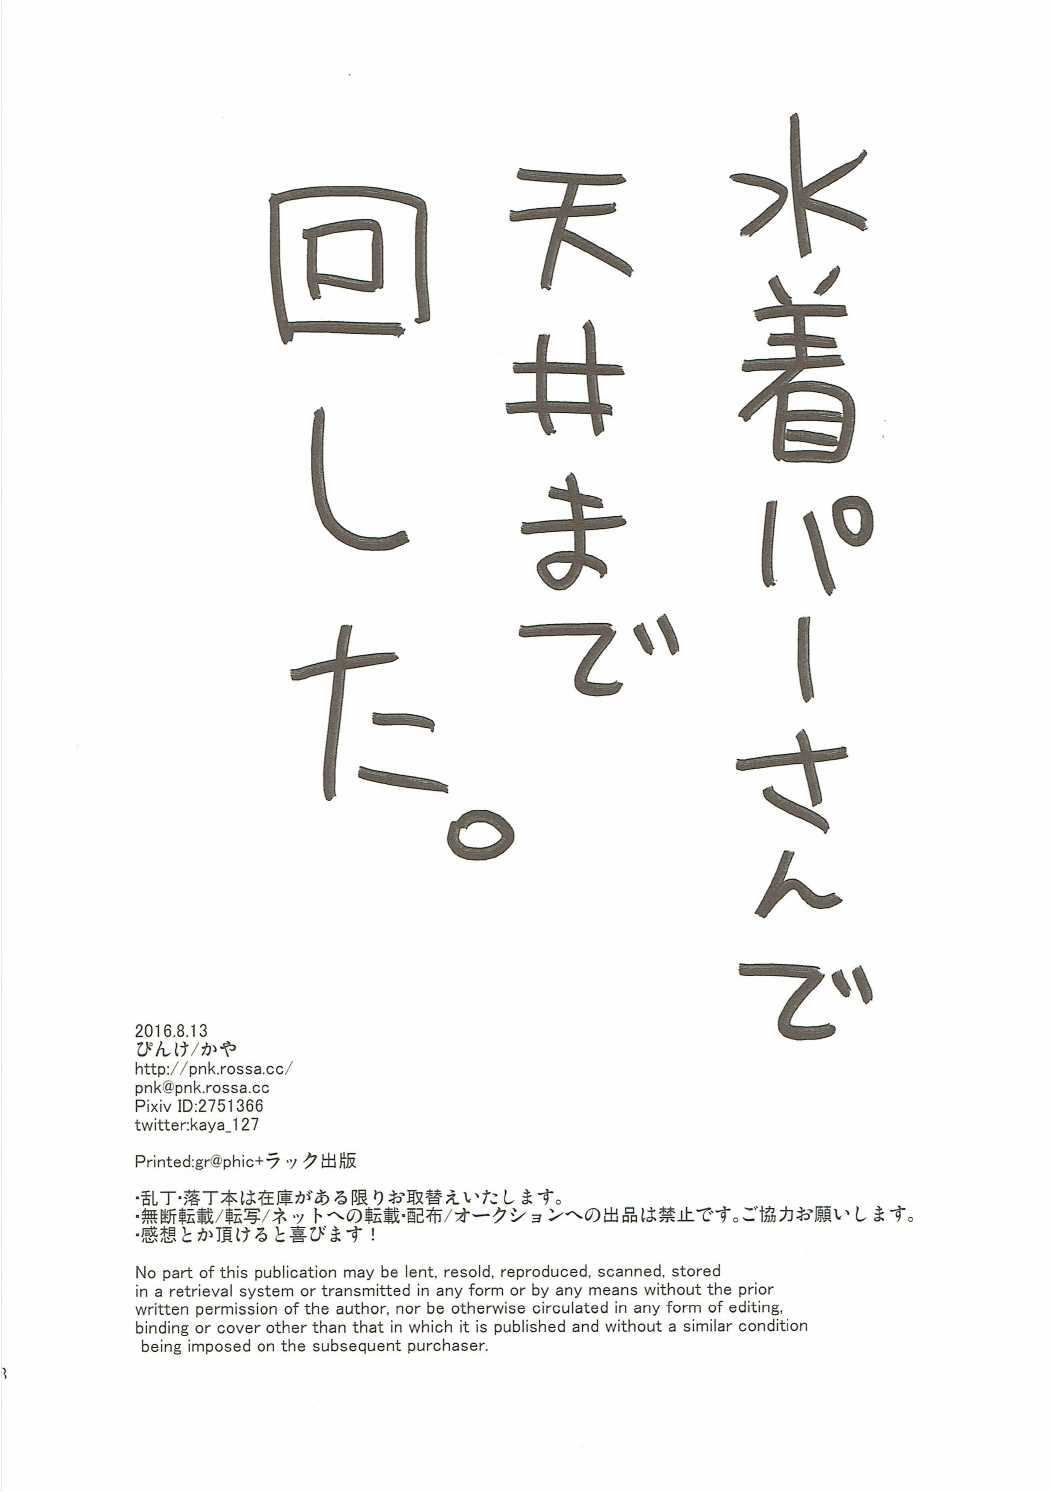 水着パーさんで
天井まで
回した。
2016.8.13
ぴんけ/かや
http://pnk.rossa.cc/
pnk@pnk.rossa.cc
Pixiv ID:2751366
twitter:kaya_127
Printed:gr@phic+ラック出版
・乱丁・落丁本は在庫がある限りお取替えいたします。
・無断転載/転写/ネットへの転載・配布/オークションへの出品は禁止です。ご協力お願いします。
・感想とか頂けると喜びます！
No part of this publication may be lent, resold, reproduced, scanned, stored
in a retrieval system or transmitted in any form or by any means without the prior
written permission of the author, nor be otherwise circulated in any form of editing,
binding or cover other than that in which it is published and without a similar condition
being imposed on the subsequent purchaser.